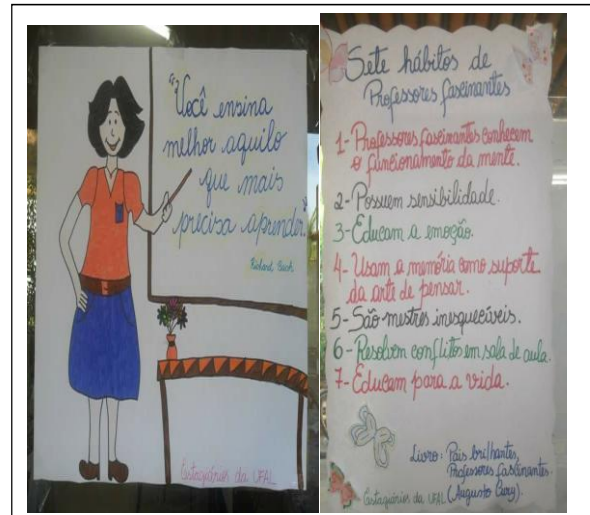 "Você ensina
melhor aquilo
que mais
precisa aprender."
Richard Bach
Estagiários da UFAL
Sete hábitos de
Professores fascinantes
1- Professores fascinantes conhecem
o funcionamento da mente.
2- Possuem sensibilidade.
3- Educam a emoção.
4- Usam a memória como suporte
da arte de pensar.
5- São mestres inesquecíveis.
6- Resolvem conflitos em sala de aula.
7- Educam para a vida.
Livro: Pais brilhantes,
Professores fascinantes.
(Augusto Cury).
Estagiários da UFAL